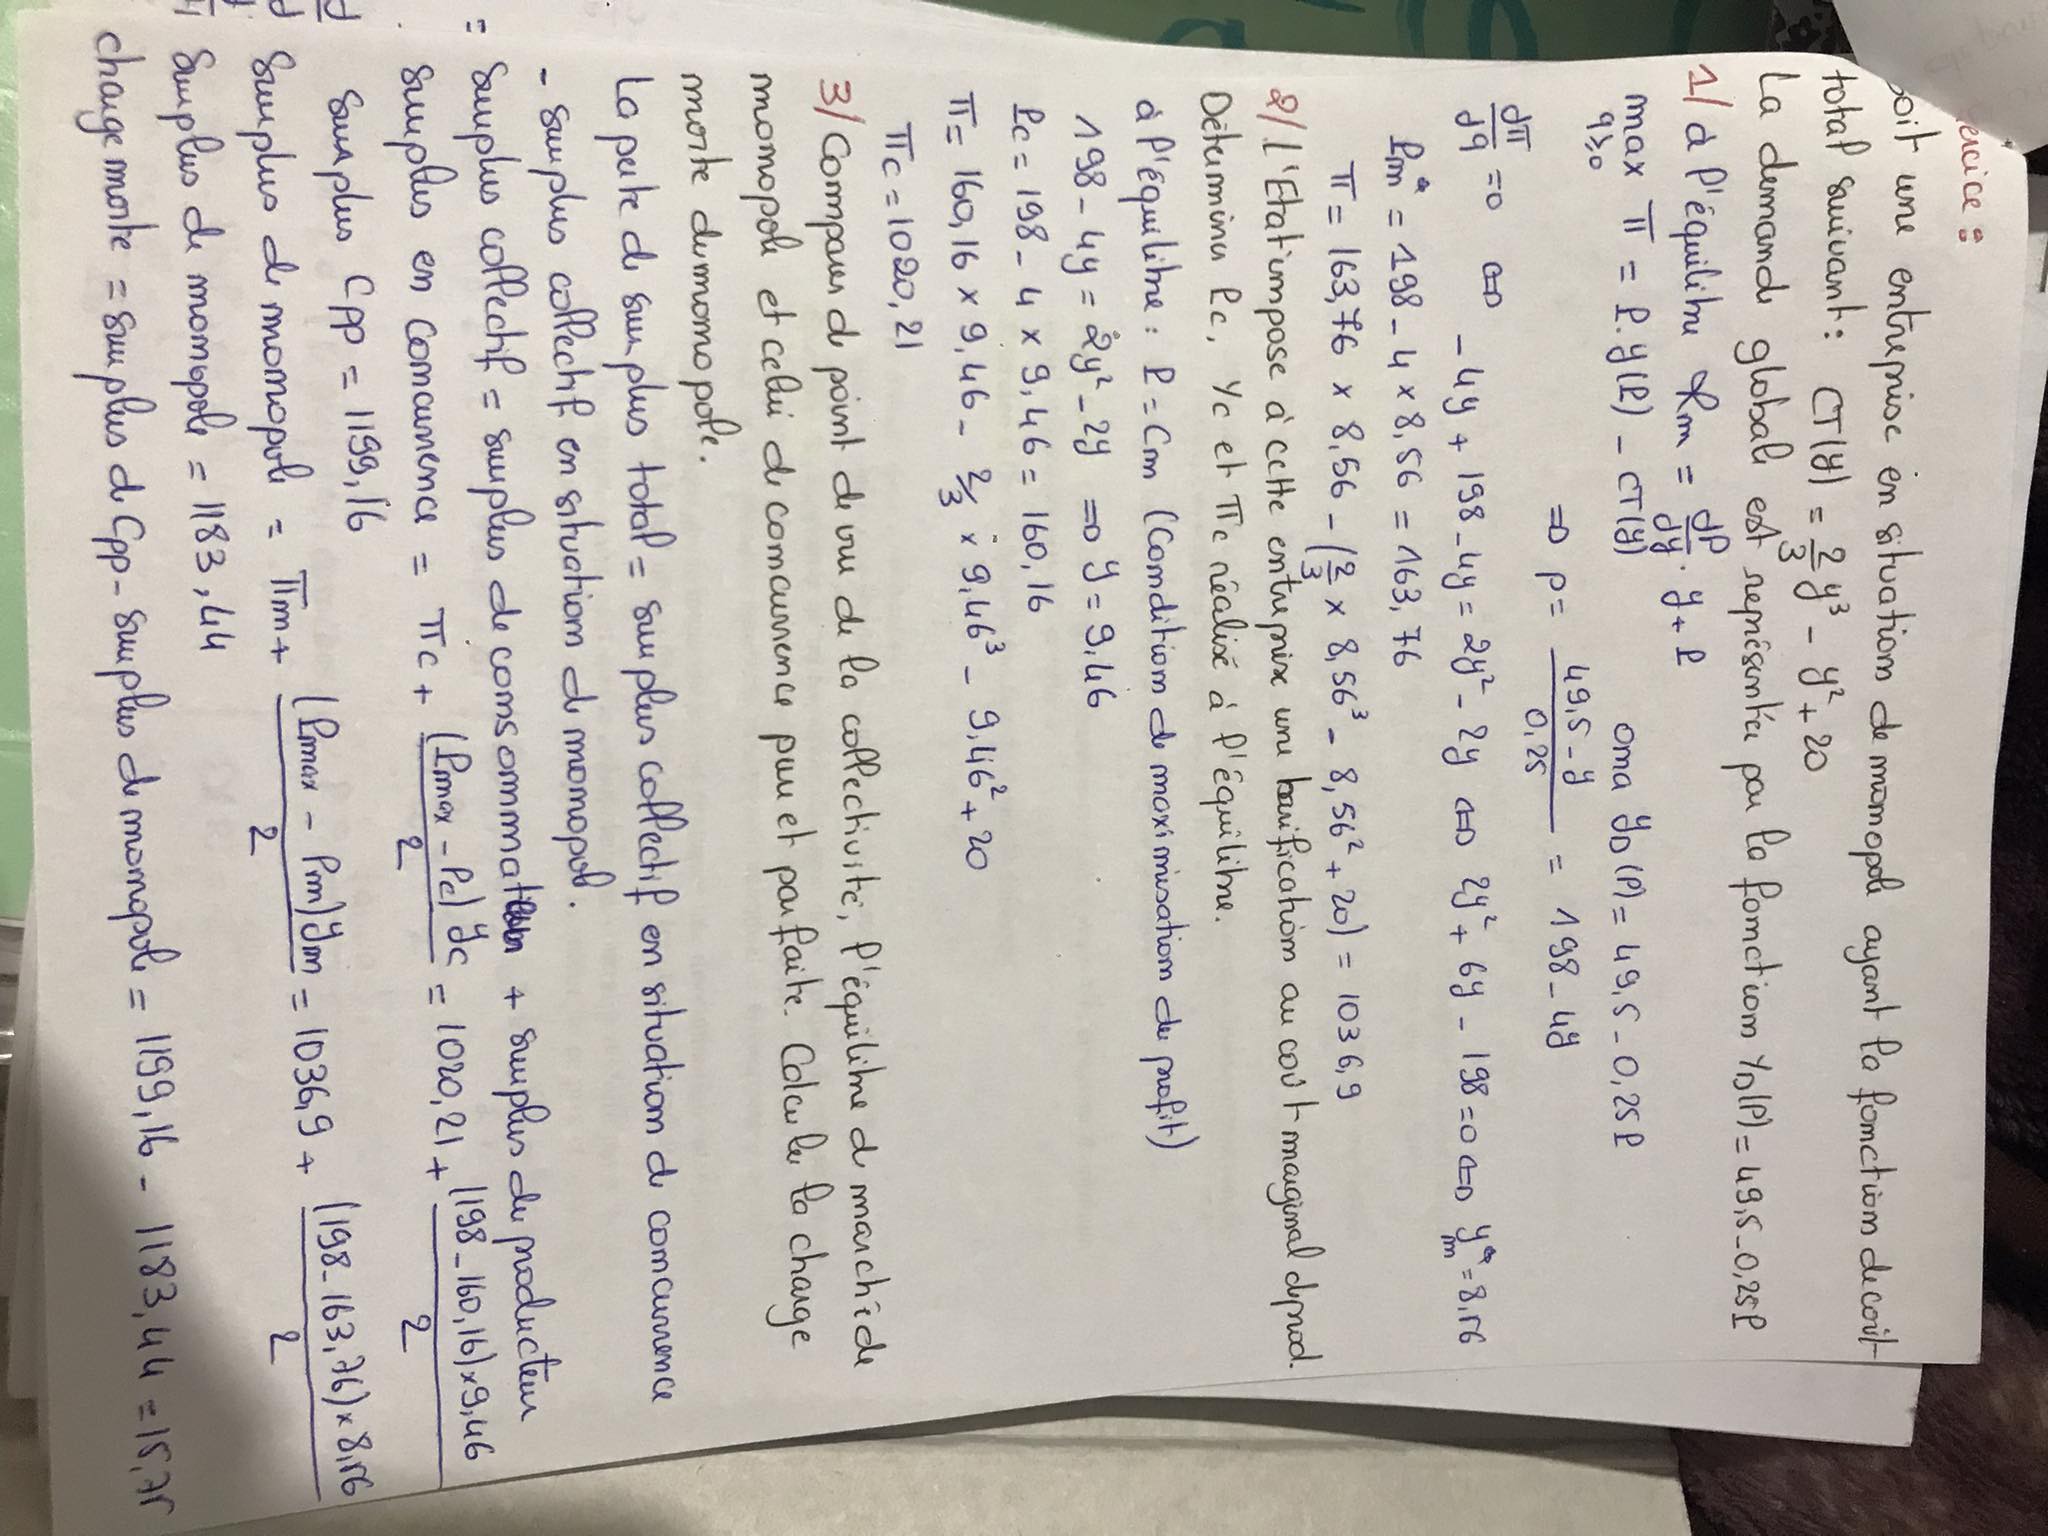 ercice :
Soit une entreprise en situation de monopole ayant la fonction de coût
total suivant : CT(y) = 2/3 y³ - y² + 20
La demande globale est représentée par la fonction YD(P) = 49,5 - 0,25P
1/ à l'équilibre Rm = dP/dy . y + P
max π = P. y(P) - CT(y) ona yD(P) = 49,5 - 0,25P
q≥0
=> p = (49,5 - y)/0,25 = 198 - 4y
dπ/dq = 0 <=> - 4y + 198 - 4y = 2y² - 2y <=> 2y² + 6y - 198 = 0 <=> y*m = 8,56
Pm* = 198 - 4 × 8,56 = 163,76
π = 163,76 × 8,56 - (2/3 × 8,56³ - 8,56² + 20) = 1036,9
2/ L'Etat impose à cette entreprise une tarification au coût marginal de prod.
Déterminer Pc, Yc et πc réalisé à l'équilibre.
à l'équilibre : P = Cm (Condition de maximisation du profit)
198 - 4y = 2y² - 2y => y = 9,46
Pc = 198 - 4 × 9,46 = 160,16
π = 160,16 × 9,46 - 2/3 × 9,46³ - 9,46² + 20
πc = 1020,21
3/ Comparer de point de vue de la collectivité, l'équilibre de marché de
monopole et celui de concurrence pure et parfaite. Calculer la charge
morte du monopole.
La perte de surplus total = surplus collectif en situation de concurrence
- surplus collectif en situation de monopole.
= Surplus collectif = surplus de consommateur + surplus du producteur
surplus en concurrence = πc + (Pmax - Pc) yc/2 = 1020,21 + (198 - 160,16) × 9,46/2
surplus Cpp = 1199,16
Surplus de monopole = πm + (Pmax - Pm) ym/2 = 1036,9 + (198 - 163,76) × 8,56/2
Surplus de monopole = 1183,44
charge morte = surplus de Cpp - surplus de monopole = 1199,16 - 1183,44 = 15,75